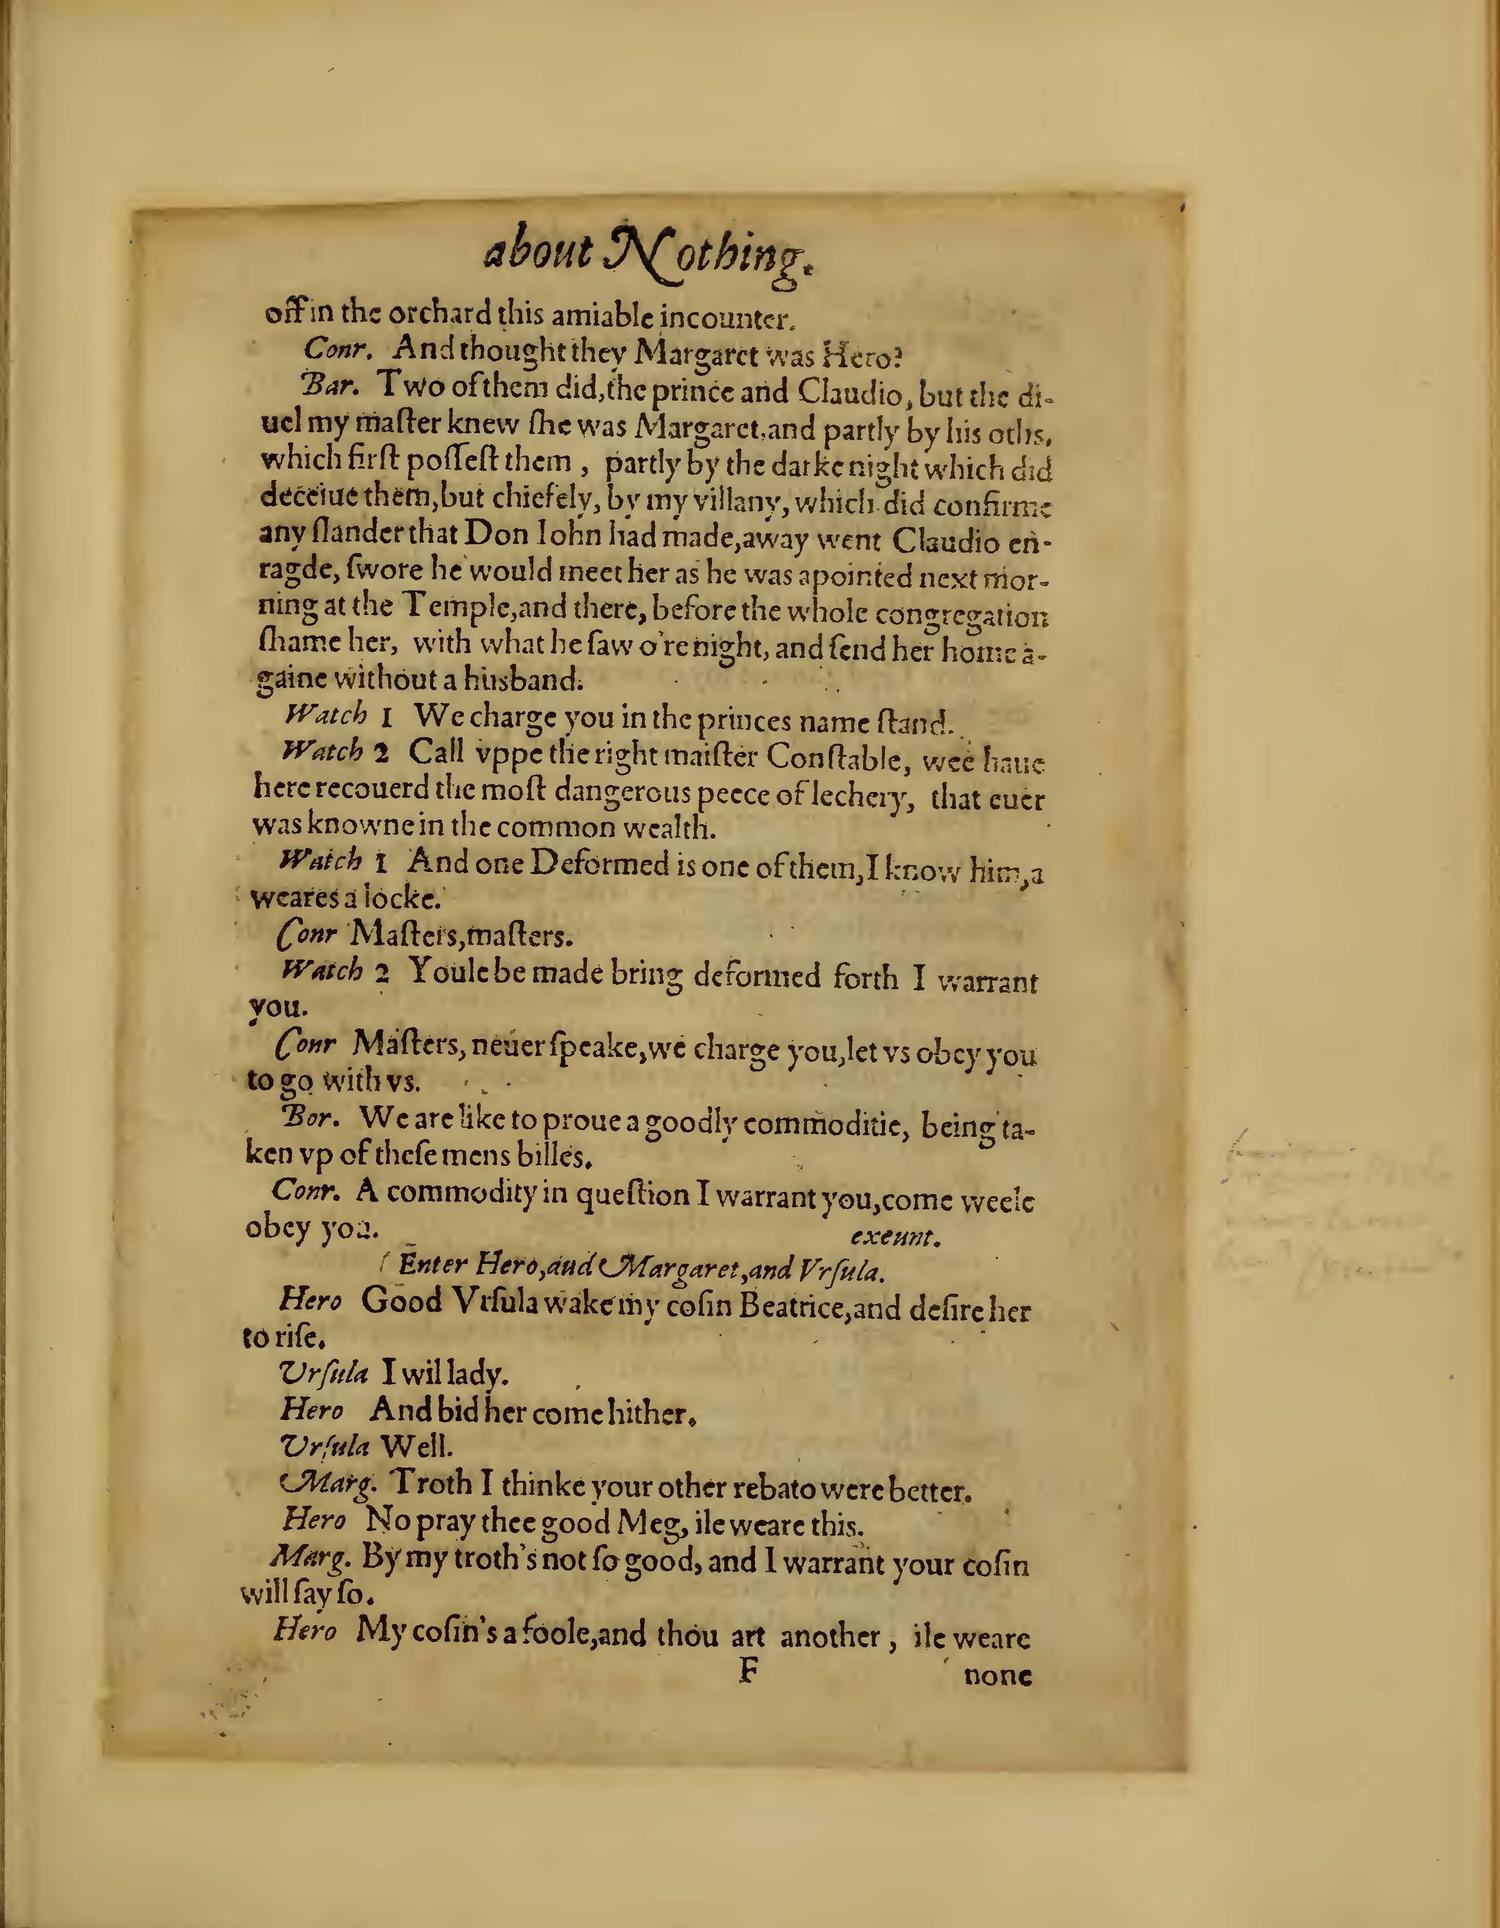 about Nothing.
off in the orchard this amiable incounter.
Conr. And thought they Margaret was Hero?
Bar. Two of them did, the prince and Claudio, but the di-
uel my maſter knew ſhe was Margaret, and partly by his oths,
which firſt poſſeſt them , partly by the darke night which did
deceiue them, but chiefely, by my villany, which did confirme
any ſlander that Don Iohn had made, away went Claudio en-
ragde, ſwore he would meet her as he was apointed next mor-
ning at the Temple, and there, before the whole congregation
ſhame her, with what he ſaw o're night, and ſend her home a-
gaine without a husband.
Watch 1 We charge you in the princes name ſtand.
Watch 2 Call vppe the right maiſter Conſtable, wee haue
here recouerd the moſt dangerous peece of lechery, that euer
was knowne in the common wealth.
Watch 1 And one Deformed is one of them, I know him, a
weares a locke.
Conr Maſters, maſters.
Watch 2 Youle be made bring deformed forth I warrant
you.
Conr Maſters, neuer ſpeake, we charge you, let vs obey you
to go with vs.
Bor. We are like to proue a goodly commoditie, being ta-
ken vp of theſe mens billes.
Conr. A commodity in queſtion I warrant you, come weele
obey you. exeunt.
Enter Hero, aud Margaret, and Vrſula.
Hero Good Vrſula wake my coſin Beatrice, and deſire her
to riſe.
Vrſula I wil lady.
Hero And bid her come hither.
Vrſula Well.
Marg. Troth I thinke your other rebato were better.
Hero No pray thee good Meg, ile weare this.
Marg. By my troth's not ſo good, and I warrant your coſin
will ſay ſo.
Hero My coſin's a foole, and thou art another , ile weare
F none